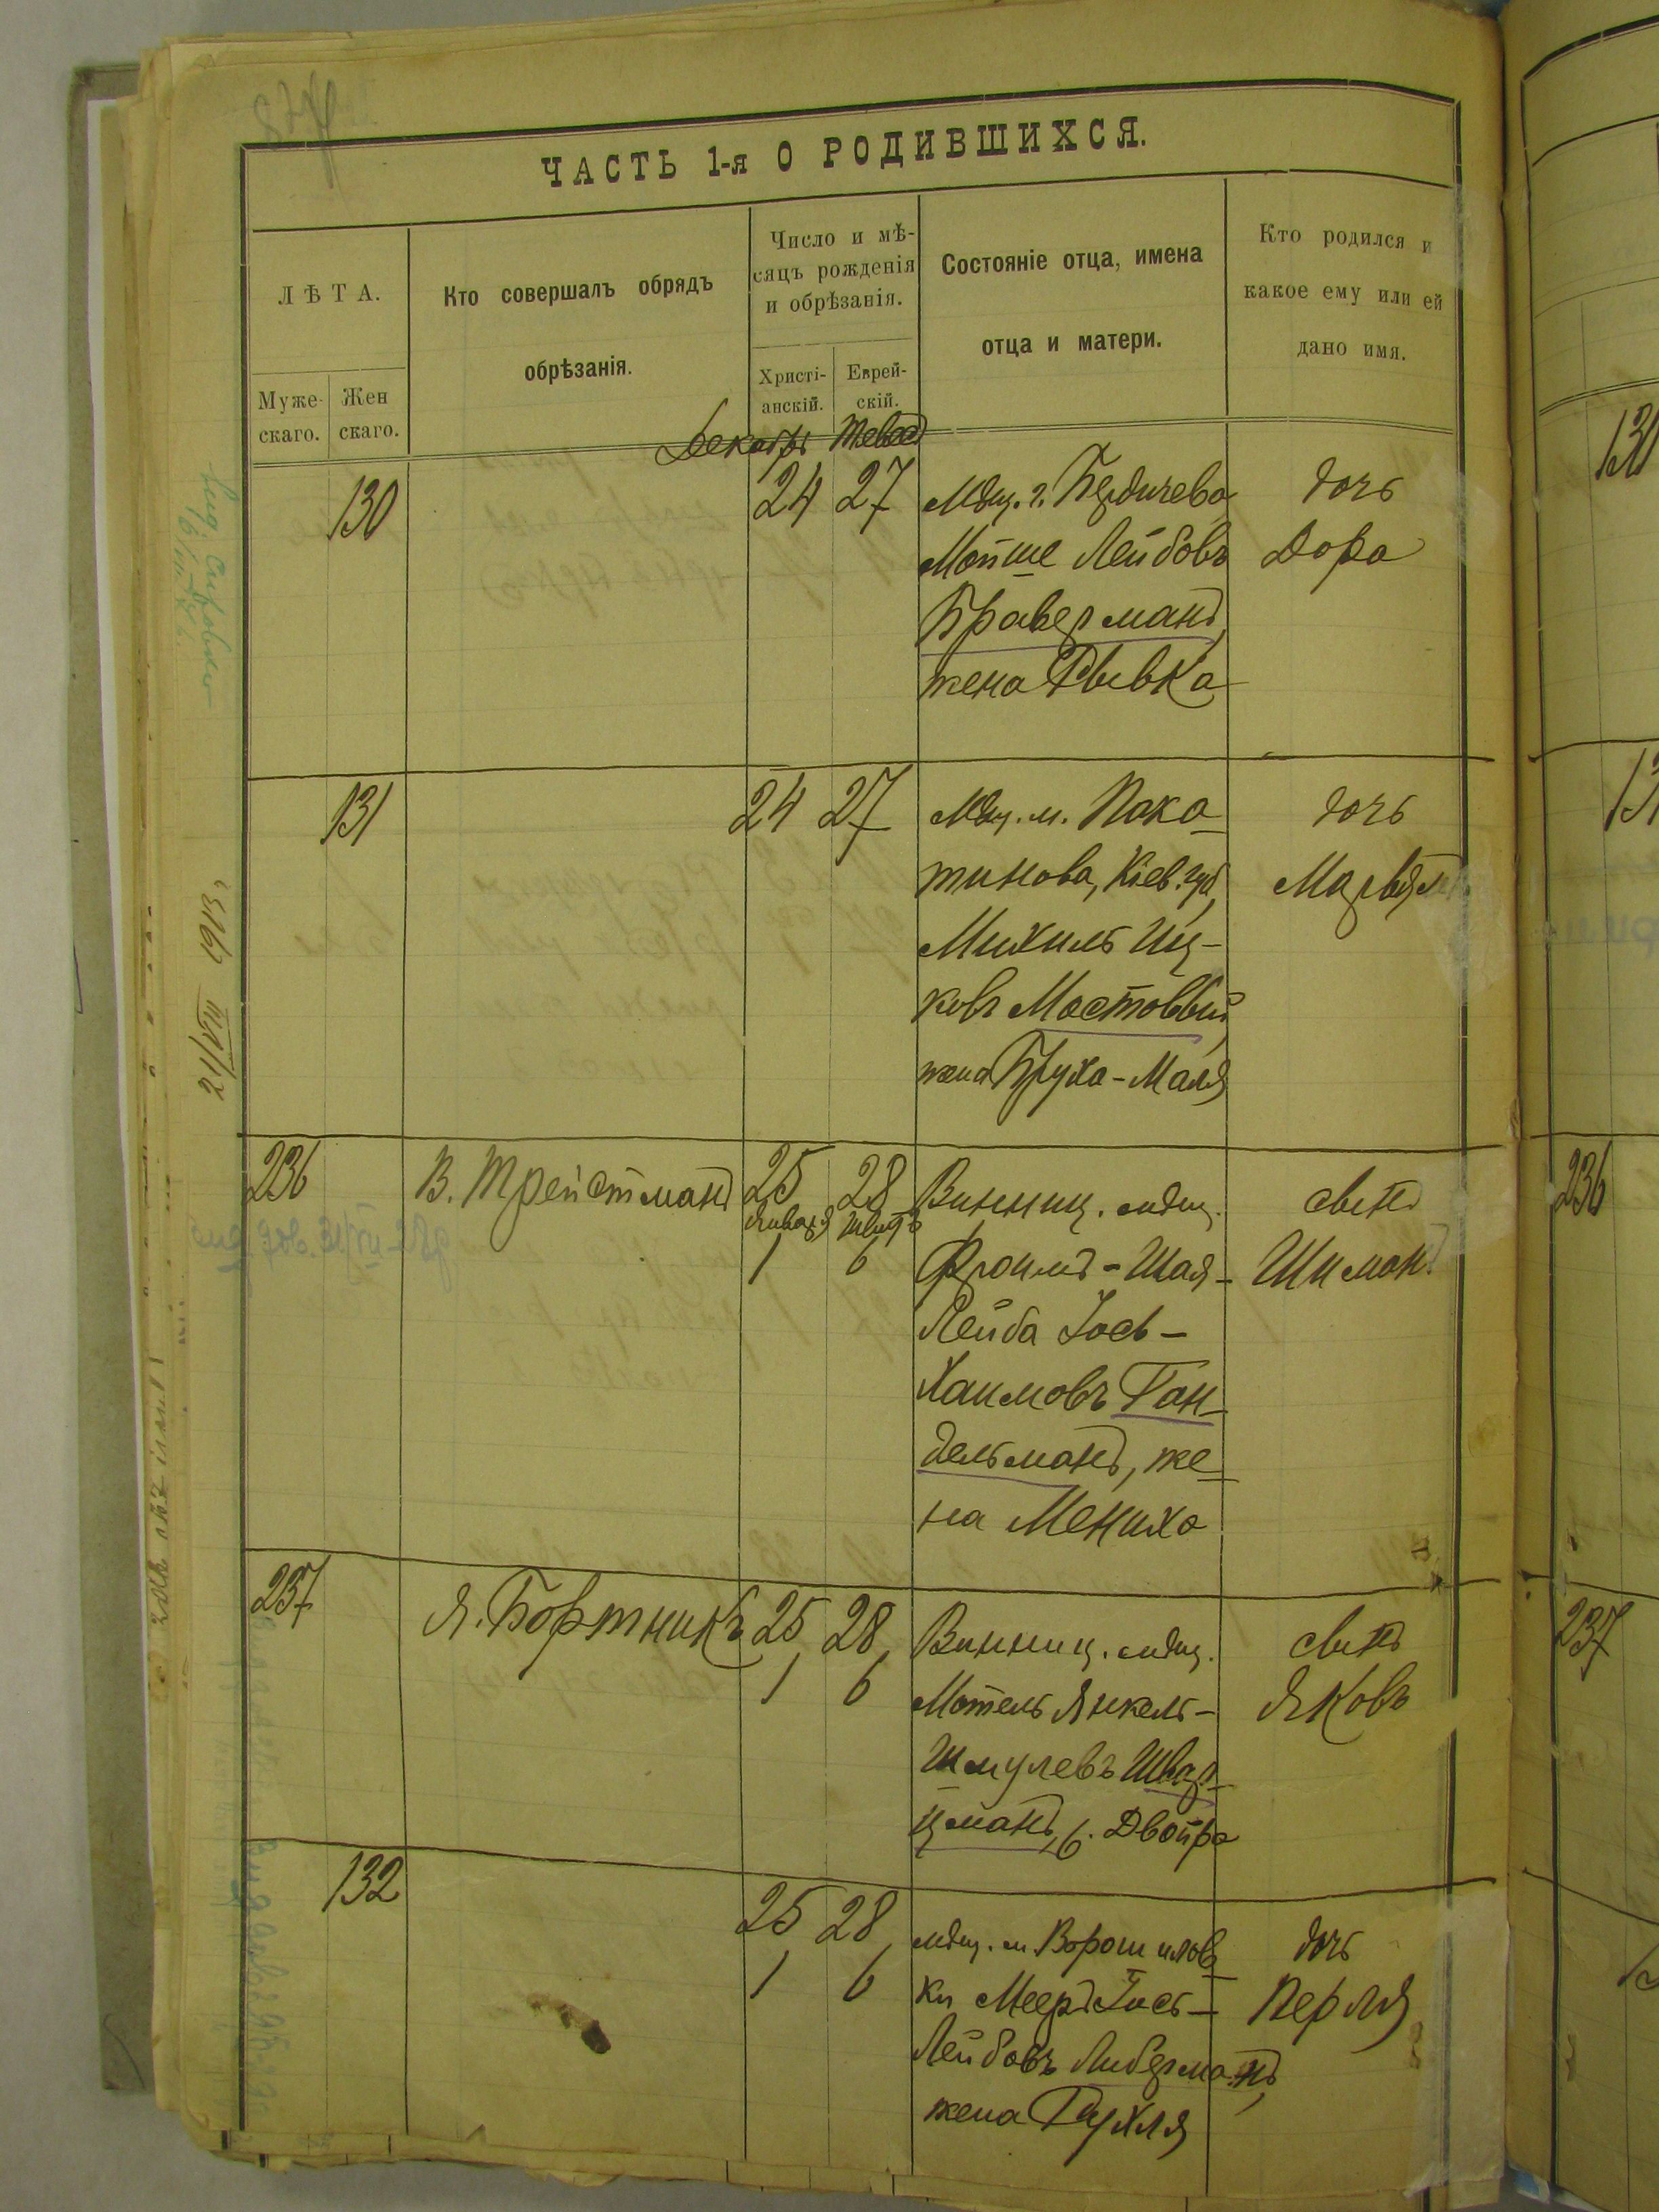 ЧАСТЬ 1-я О РОДИВШИХСЯ.
ЛѢТА.
Муже-
скаго.
Жен
скаго.
Кто совершалъ обрядъ
обрѣзанія.
Число и мѣ-
сяцъ рожденія
и обрѣзанія.
Христі-
анскій.
Еврей-
скій.
Состояніе отца, имена
отца и матери.
Кто родился и
какое ему или ей
дано имя.
Декабрь Тевес
130
24 27
Мѣщ. г. Бердичева
Мойше Лейбовъ
Браверманъ,
жена Рывка
дочь
Дора
131
24 27
Мѣщ. м.
тинова, Кіев. губ.
Михиль Иц-
ковъ Мостовый,
жена Бруха-Маля
дочь
Марьям
236
В. Трейстманъ
25 28
Января Шватъ
1 6
Винниц. мѣщ.
Фроимъ-Шая-
Лейба Іось-
Хаимовъ Ган-
дельманъ, же-
на Мениха
сынъ
Шимонъ
237
Я. Бортникъ
25 28
1 6
Винниц. мѣщ.
Мотель Янкель-
Шмулевъ Швар-
цманъ, ж. Двойра
сынъ
Яковъ
132
25 28
1 6
мѣщ. м. Ворошилов-
ки Мееръ Іось-
Лейбовъ Либерманъ,
жена Рухля
дочь
Перля
21/VIII 1913 г.
131
236
237